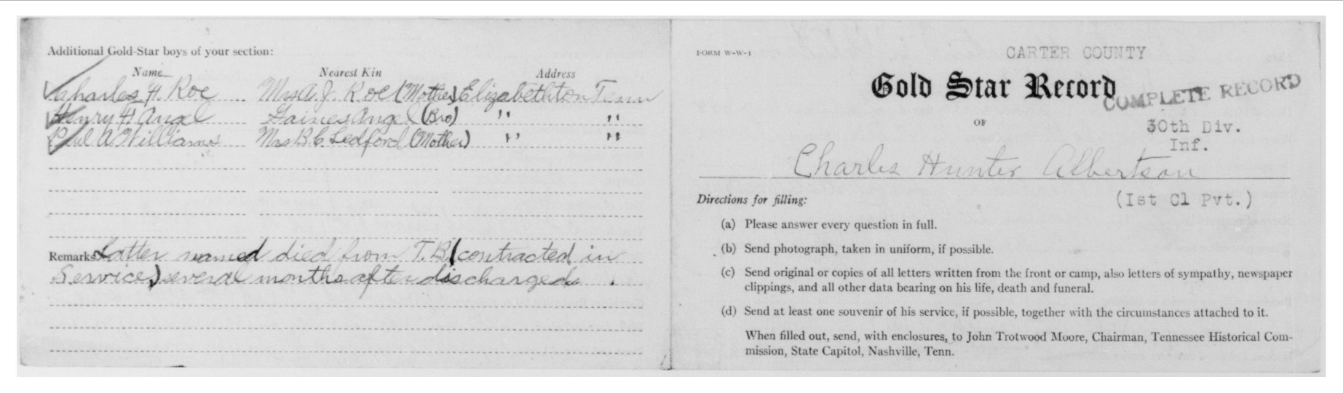 Additional Gold-Star boys of your section:
Name Nearest Kin Address
Charles H. Roe Mrs A. J. Roe (Mother) Elizabethton Tenn
Henry H Angel Gaines Angel (Bro) " "
Paul A Williams Mrs B. C. Ledford (Mother) " "
Remarks Latter named died from T.B. (contracted in
Service) several months after discharged.
FORM W-W-1
CARTER COUNTY
Gold Star Record
COMPLETE RECORD
OF
30th Div.
Inf.
Charles Hunter Albertson
(Ist Cl Pvt.)
Directions for filling:
(a) Please answer every question in full.
(b) Send photograph, taken in uniform, if possible.
(c) Send original or copies of all letters written from the front or camp, also letters of sympathy, newspaper
clippings, and all other data bearing on his life, death and funeral.
(d) Send at least one souvenir of his service, if possible, together with the circumstances attached to it.
When filled out, send, with enclosures, to John Trotwood Moore, Chairman, Tennessee Historical Com-
mission, State Capitol, Nashville, Tenn.